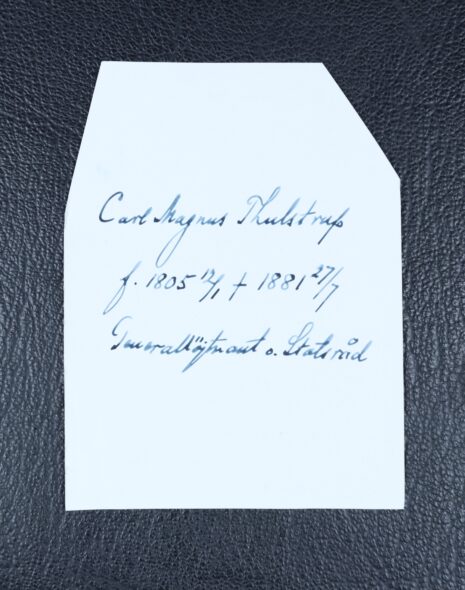 Carl Magnus Thulstrup
f. 1805 12/1 † 1881 27/7
Generallöjtnant o. Statsråd